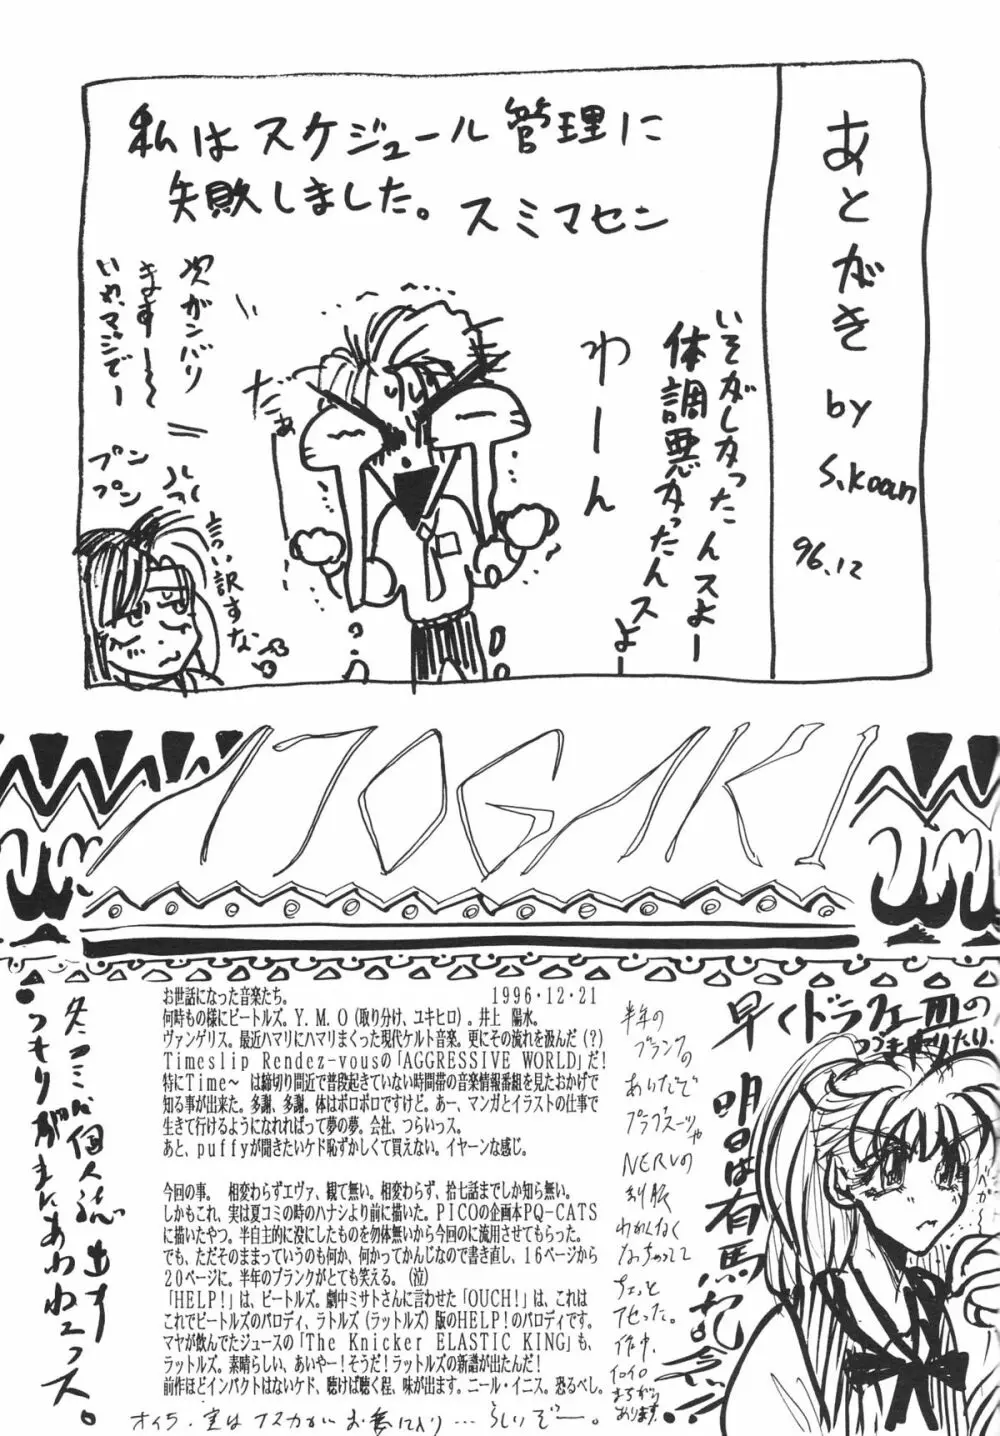 あとがき
by
S.Koan
96.12
私はスケジュール管理に
失敗しました。スミマセン
いそがしかったんスよー
体調悪かったんスよー
わーん
だぁ
次ガンバリ
ますー
いや、マジでー
プン
プン
言い訳すな
ATOGAKI
お世話になった音楽たち。 1996・12・21
何時もの様にビートルズ。Y.M.O(取り分け、ユキヒロ)。井上 陽水。
ヴァンゲリス。最近ハマリにハマリまくった現代ケルト音楽。更にその流れを汲んだ(?)
Timeslip Rendez-vousの「AGGRESSIVE WORLD」だ!
特にTime〜 は締切り間近で普段起きていない時間帯の音楽情報番組を見たおかげで
知る事が出来た。多謝、多謝。体はボロボロですけど。あー、マンガとイラストの仕事で
生きて行けるようになれればって夢の夢。会社、つらいっス。
あと、puffyが聞きたいケド恥ずかしくて買えない。イヤーンな感じ。
今回の事。 相変わらずエヴァ、観て無い。相変わらず、拾七話までしか知ら無い。
しかもこれ、実は夏コミの時のハナシより前に描いた。PICOの企画本PQ-CATS
に描いたやつ。半自主的に没にしたものを勿体無いから今回のに流用させてもらった。
でも、ただそのままっていうのも何か、何かってかんじなので書き直し、16ページから
20ページに。半年のブランクがとても笑える。(泣)
「HELP!」は、ビートルズ。劇中ミサトさんに言わせた「OUCH!」は、これは
これでビートルズのパロディ、ラトルズ(ラットルズ)版のHELP!のパロディです。
マヤが飲んでたジュースの「The Knicker ELASTIC KING」も、
ラットルズ。素晴らしい、あいやー!そうだ!ラットルズの新譜が出たんだ!
前作ほどインパクトはないケド、聴けば聴く程、味が出ます。ニール・イニス。恐るべし。
オイラ、実はアスカがお気に入り…らしいぞー。
冬コミに個人誌出す
つもりが間にあわねっス。
早くドラクエⅢの
つづきやりたり、
明日は有馬記念!!
半年の
ブランクの
あいだで
プラグスーツや
NERVの
制服
わかんなく
なっちゃってて
ちょっと
アセった。
作中、
イロイロ
まちがって
おります。